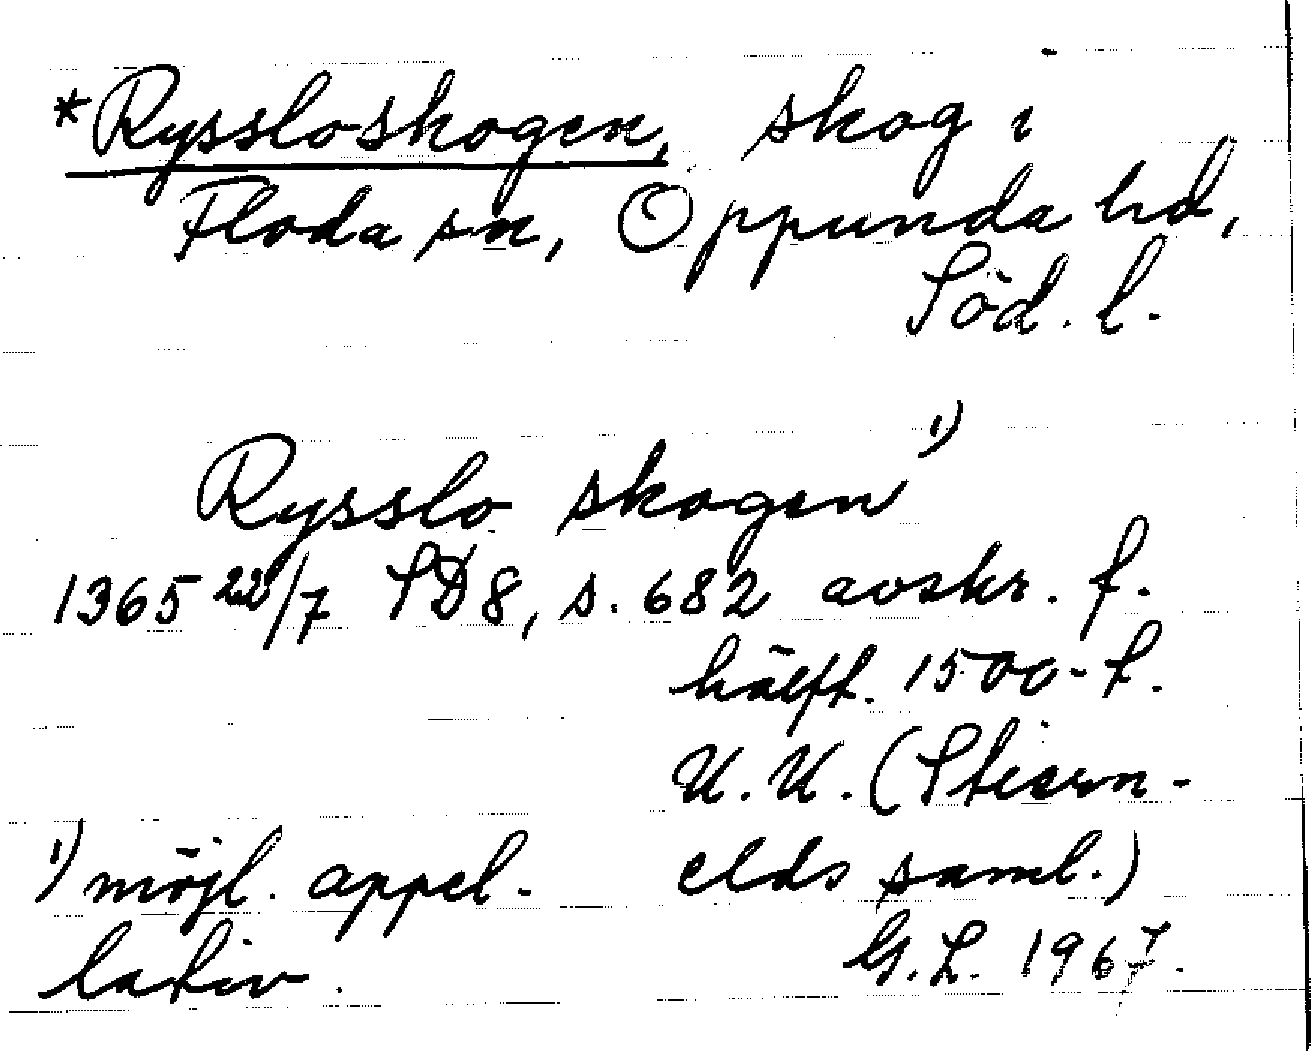 *Ryssloskogen, skog i
Floda sn, Oppunda hd,
Söd. l.
Rysslo skogen 1)
1365 22/7 SD8, s. 682 avskr. f.
hälft. 1500-t.
U.U. (Stiern-
elds saml.)
1) möjl. appel-
lativ.
G.L. 1967.